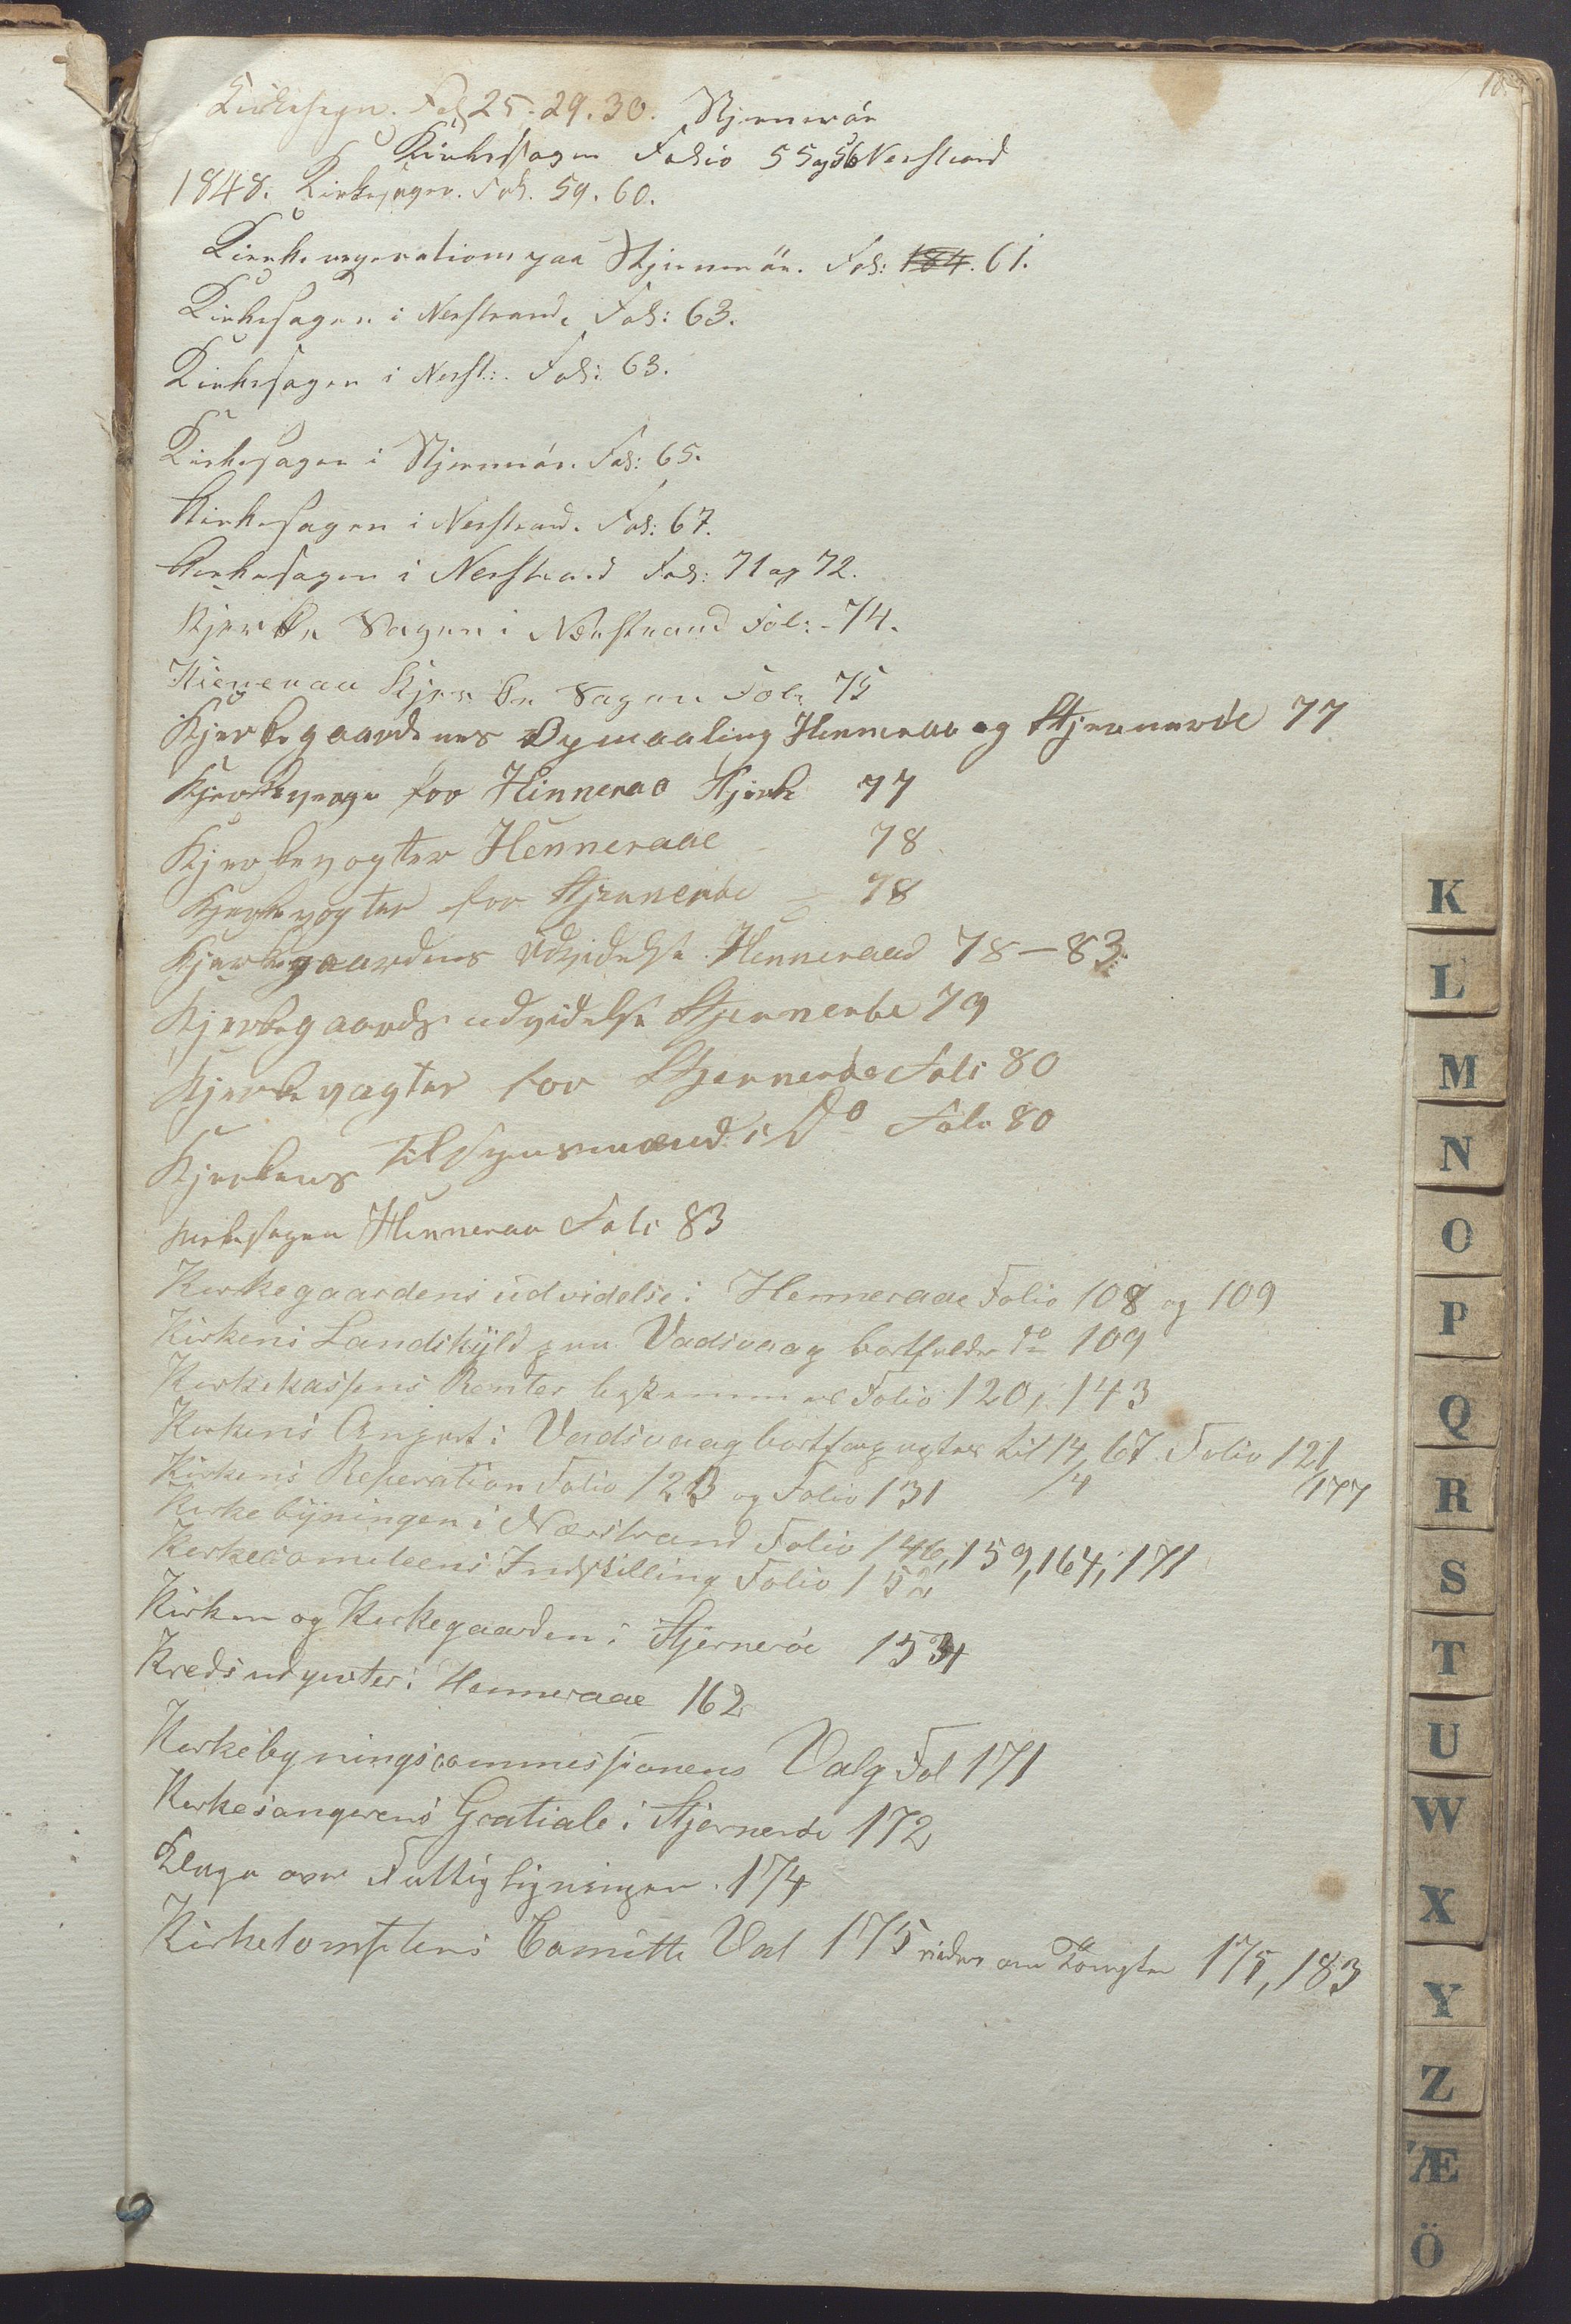 Kirkesagen. Fol 25-29.30. Stjernerøe
Kirkesagen Folio 55 og 56 Nerstrand
1848. Kirkesagen. Fol. 59. 60.
Kirkereperationen paa Stjernerøe. Fol: 184. 61.
Kirkesagen i Nerstrand. Fol: 63.
Kirkesagen i Nerst:. Fol: 63.
Kirkesagen i Stjernerøe. Fol: 65.
Kirkesagen i Nerstrand. Fol: 67.
Kirkesagen i Nerstrand Fol: 71 og 72.
Kjerke Sagen i Nærstrand Fol: - 74.
Hieneraa Kjerke Sagen Fol: 75
Kjerkegaardenes Opmaaling Hinneraa og Stjernerøe 77
Kjerkeverge for Hinneraa Kjerk 77
Kjerkevogter Henneraae 78
Kjerkevogter for Stjernerøe - 78
Kjerkegaardens Udvidelse Henneraae 78-83.
Kjerkegaards udvidelse Stjernerøe 79
Kjerkevogter for Stjernerøe Foli 80
Kjerkens Tilsynsmænd i Do Foli 80
Kirkesagen Hinneraa Foli 83
Kirkegaardens udvidelse i Henneraae Folio 108 og 109
Kirkens Landskyld paa Vadsvaag bortfalder do 109
Kirkekassens Renter bestemmes Folio 120, 143
Kirkens Anpart i Vadsvaag bortforpagtes til 14/4 67. Folio 121, 177
Kirkens Reperation Folio 123 og Folio 131
Kirkebygningen i Nærstrand Folio 146, 159, 164, 171
Kirkecomiteens Indstilling Folio 152
Kirken og Kirkegaarden i Stjernerøe 154
Kreds udgivter i Henneraae 162
Kirkebygningscommissionens Valg Fol 171
Kirkesangerens Gratiale i Stjernerøe 172
Klage over Fattigligningen. 174
Kirketomptens Comitte Val 175 videre om Tompten 175, 183
K
L
M
N
O
P
Q
R
S
T
U
W
X
Y
Z
Æ
Ö